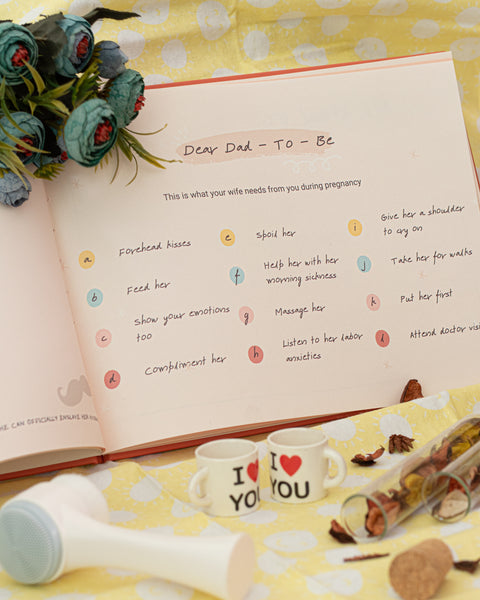 Dear Dad - TO - Be
This is what your wife needs from you during pregnancy
a Forehead kisses
b Feed her
c Show your emotions
too
d Compliment her
e Spoil her
f Help her with her
morning sickness
g Massage her
h Listen to her labor
anxieties
i Give her a shoulder
to cry on
j Take her for walks
k Put her first
l Attend doctor
CAN OFFICIALLY ENSLAVE HER
I ❤
YOU
I ❤
YOU